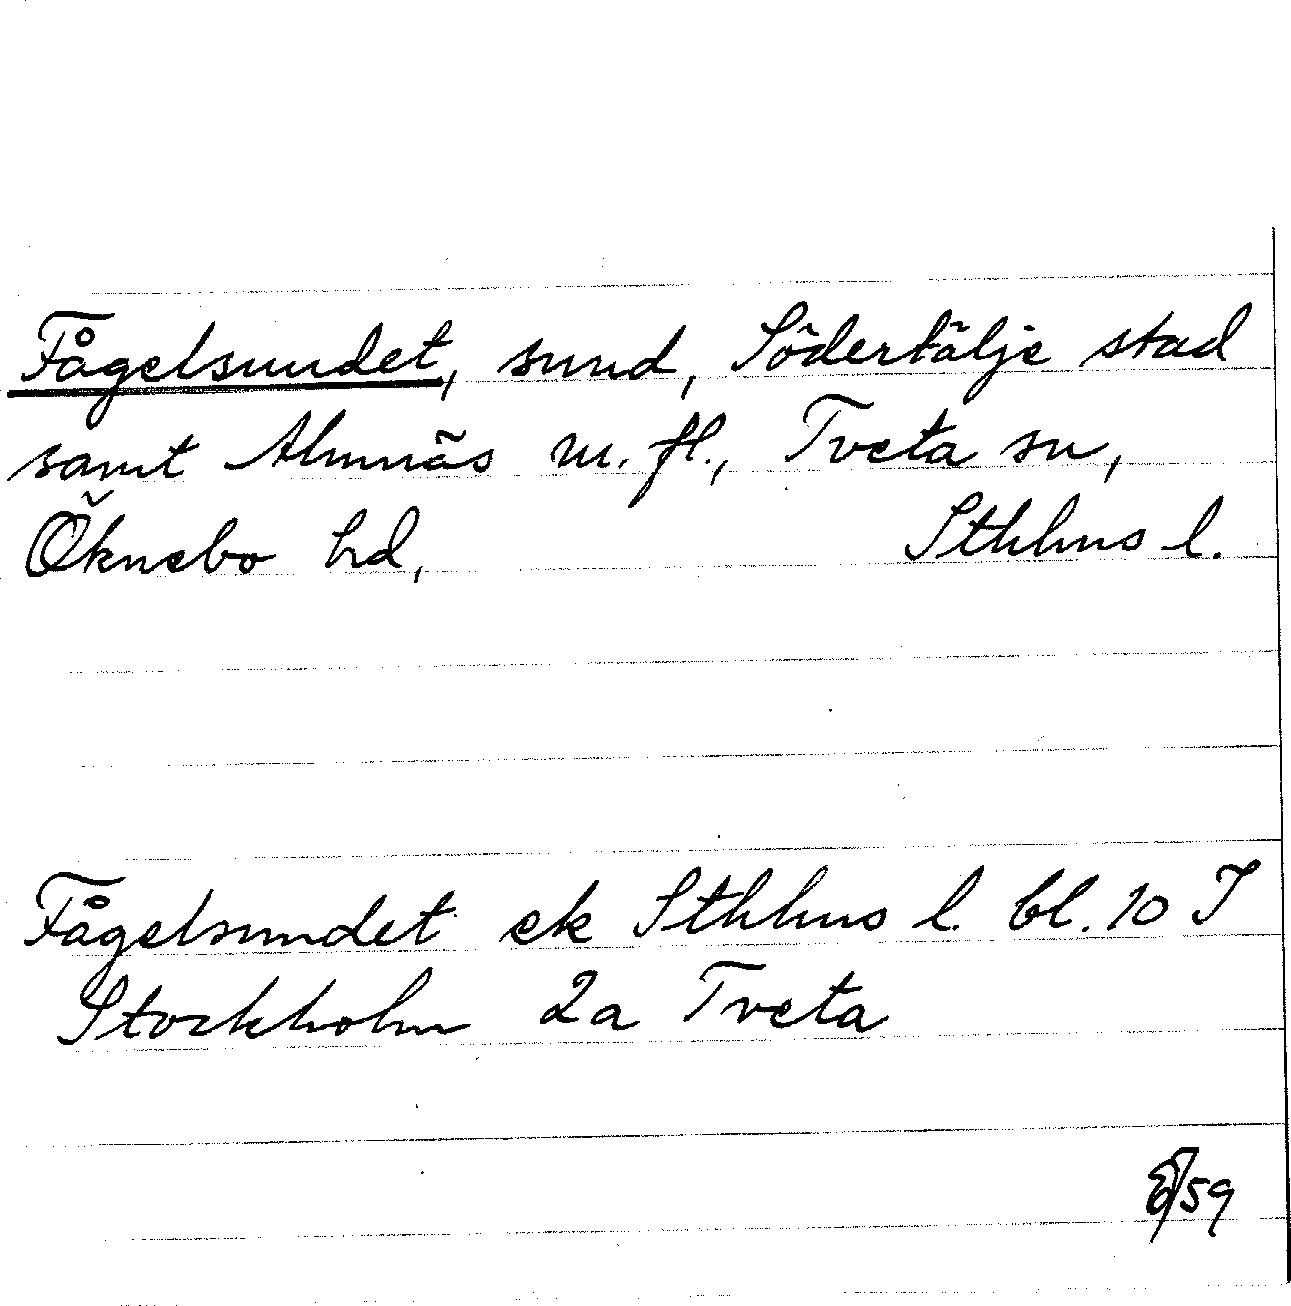 Fågelsundet, sund, Södertälje stad
samt Almnäs m. fl., Tveta sn,
Öknebo hd, Sthlms l.
Fågelsundet ek Sthlms l. bl. 10 I
Stockholm 2a Tveta
/59